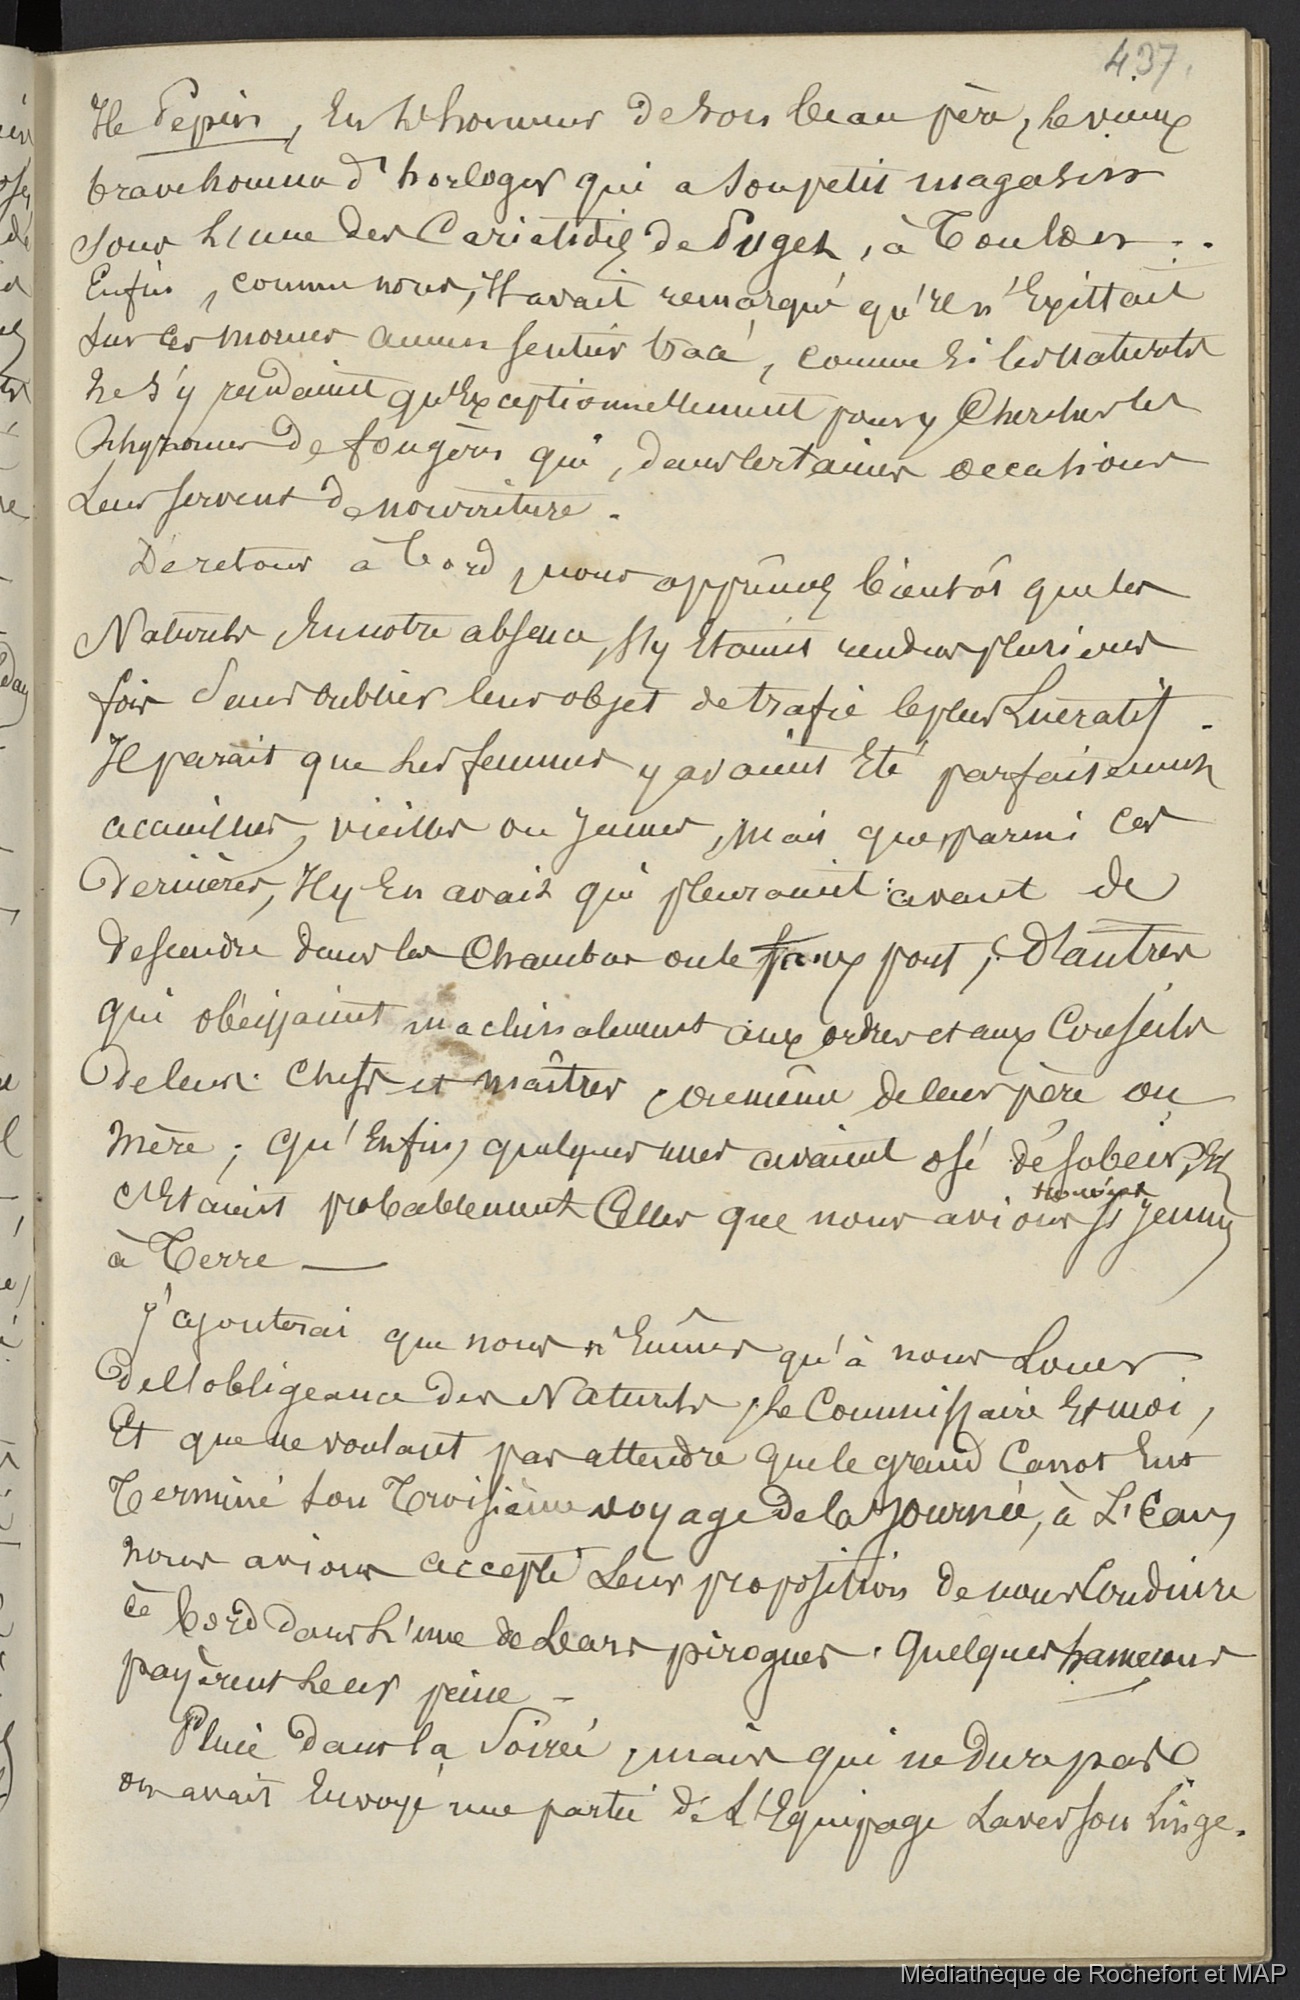 437.
Ile Pepin, En l'honneur de son beau père, le vieux
brave homme d'horloger qui a son petit magasin
sous l'une des Cariatides de Puget, à Toulon..
Enfin, comme nous, Il avait remarqué qu'il n'Existait
sur ces mornes aucun sentier tracé, comme si les naturels
ne s'y rendaient qu'Exceptionnellement pour y Chercher les
Rhyzomes de fougères qui, dans certaines occasions
Leur servent de nourriture.
De retour à bord, nous apprîmes bientôt que les
Naturels, En notre absence, s'y Etaient rendus plusieurs
fois Sans oublier leur objet de trafic le plus Lucratif.
Il paraît que les femmes y avaient Eté parfaitement
accueillies, vieilles ou jeunes, mais que, parmi ces
Dernières, Il y En avait qui pleuraient avant de
descendre dans les Chambres ou le faux pont; D'autres
qui obéissaient machinalement aux ordres et aux Conseils
de leurs Chefs et maîtres, ou même de leur père ou
Mère; Qu'Enfin, quelques unes avaient osé désobéir, Et
c'Etaient probablement Celles que nous avions trouvées si jeunes
à Terre —
J'ajouterai que nous n'Eûmes qu'à nous Louer
de l'obligeance des Naturels, le Commissaire Et moi,
Et que ne voulant pas attendre que le grand Canot Eut
Terminé son Troisième voyage de la journée, à L'Eau,
nous avions accepté Leur proposition de nous Conduire
à bord dans l'une de Leurs pirogues. Quelques hameçons
payèrent leur peine —
Pluie dans la Soirée, mais qui ne dure pas
on avait Envoyé une partie de l'Equipage Laver son linge.
Médiathèque de Rochefort et MAP